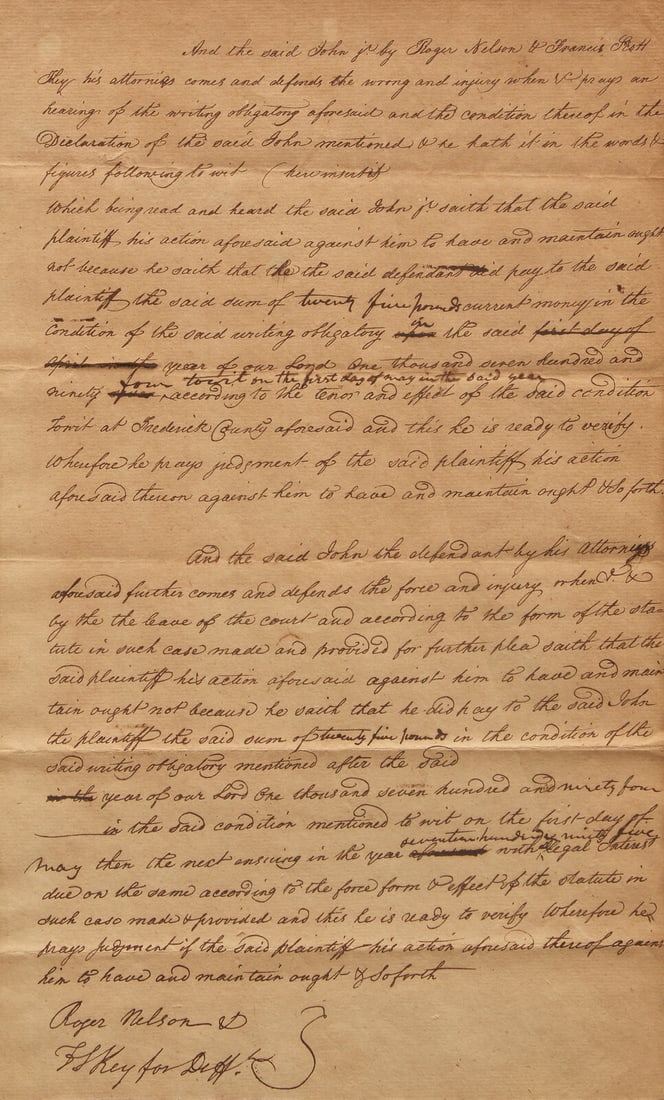 And the said John jr. by Roger Nelson & Francis Scott
Key his attornies comes and defends the wrong and injury when &c prays an
hearing of the writing obligatory aforesaid and the condition thereof in the
Declaration of the said John mentioned & he hath it in the words &
figures following to wit (here insert it
Which being read and heard the said John jr. saith that the said
plaintiff his action aforesaid against him to have and maintain ought
not because he saith that the the said defendant did pay to the said
plaintiff the said sum of twenty five pounds current money in the
Condition of the said writing obligatory upon in the said first day of
April in the year of our Lord One thousand seven hundred and
four towit on the first day of may in the said year
ninety according to the tenor and effect of the said condition
Towit at Frederick County aforesaid and this he is ready to verify.
Wherefore he prays judgment of the said plaintiff his action
aforesaid thereon against him to have and maintain ought &So forth.
And the said John the defendant by his Attornies
aforesaid further comes and defends the force and injury when &c &
by the the leave of the court and according to the form of the sta-
tute in such case made and provided for further plea saith that the
said plaintiff his action aforesaid against him to have and main
tain ought not because he saith that he did pay to the said John
the plaintiff the said sum of twenty five pounds in the condition of the
said writing obligatory mentioned after the said
in the year of our Lord One thousand seven hundred and ninety four
in the said condition mentioned to wit on the first day of
seventeen hundred & ninety five
May then the next ensuing in the year aforesaid with legal Interest
due on the same according to the force form & effect of the statute in
such case made & provided and this he is ready to verify Wherefore he
prays Judgment if the said plaintiff his action aforesaid thereof against
him to have and maintain ought & So forth
Roger Nelson &
F S Key for Deft.